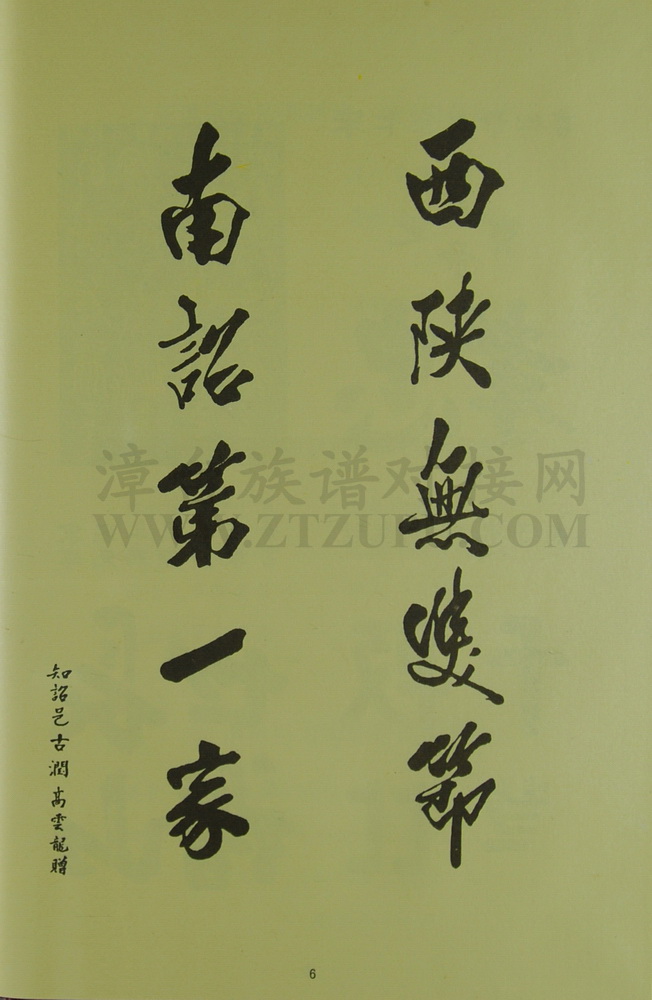 西陝無雙節
南詔第一家
知詔邑古潤高雲龍贈
漳台族谱对接网
WWW.ZTZUPU.COM
6